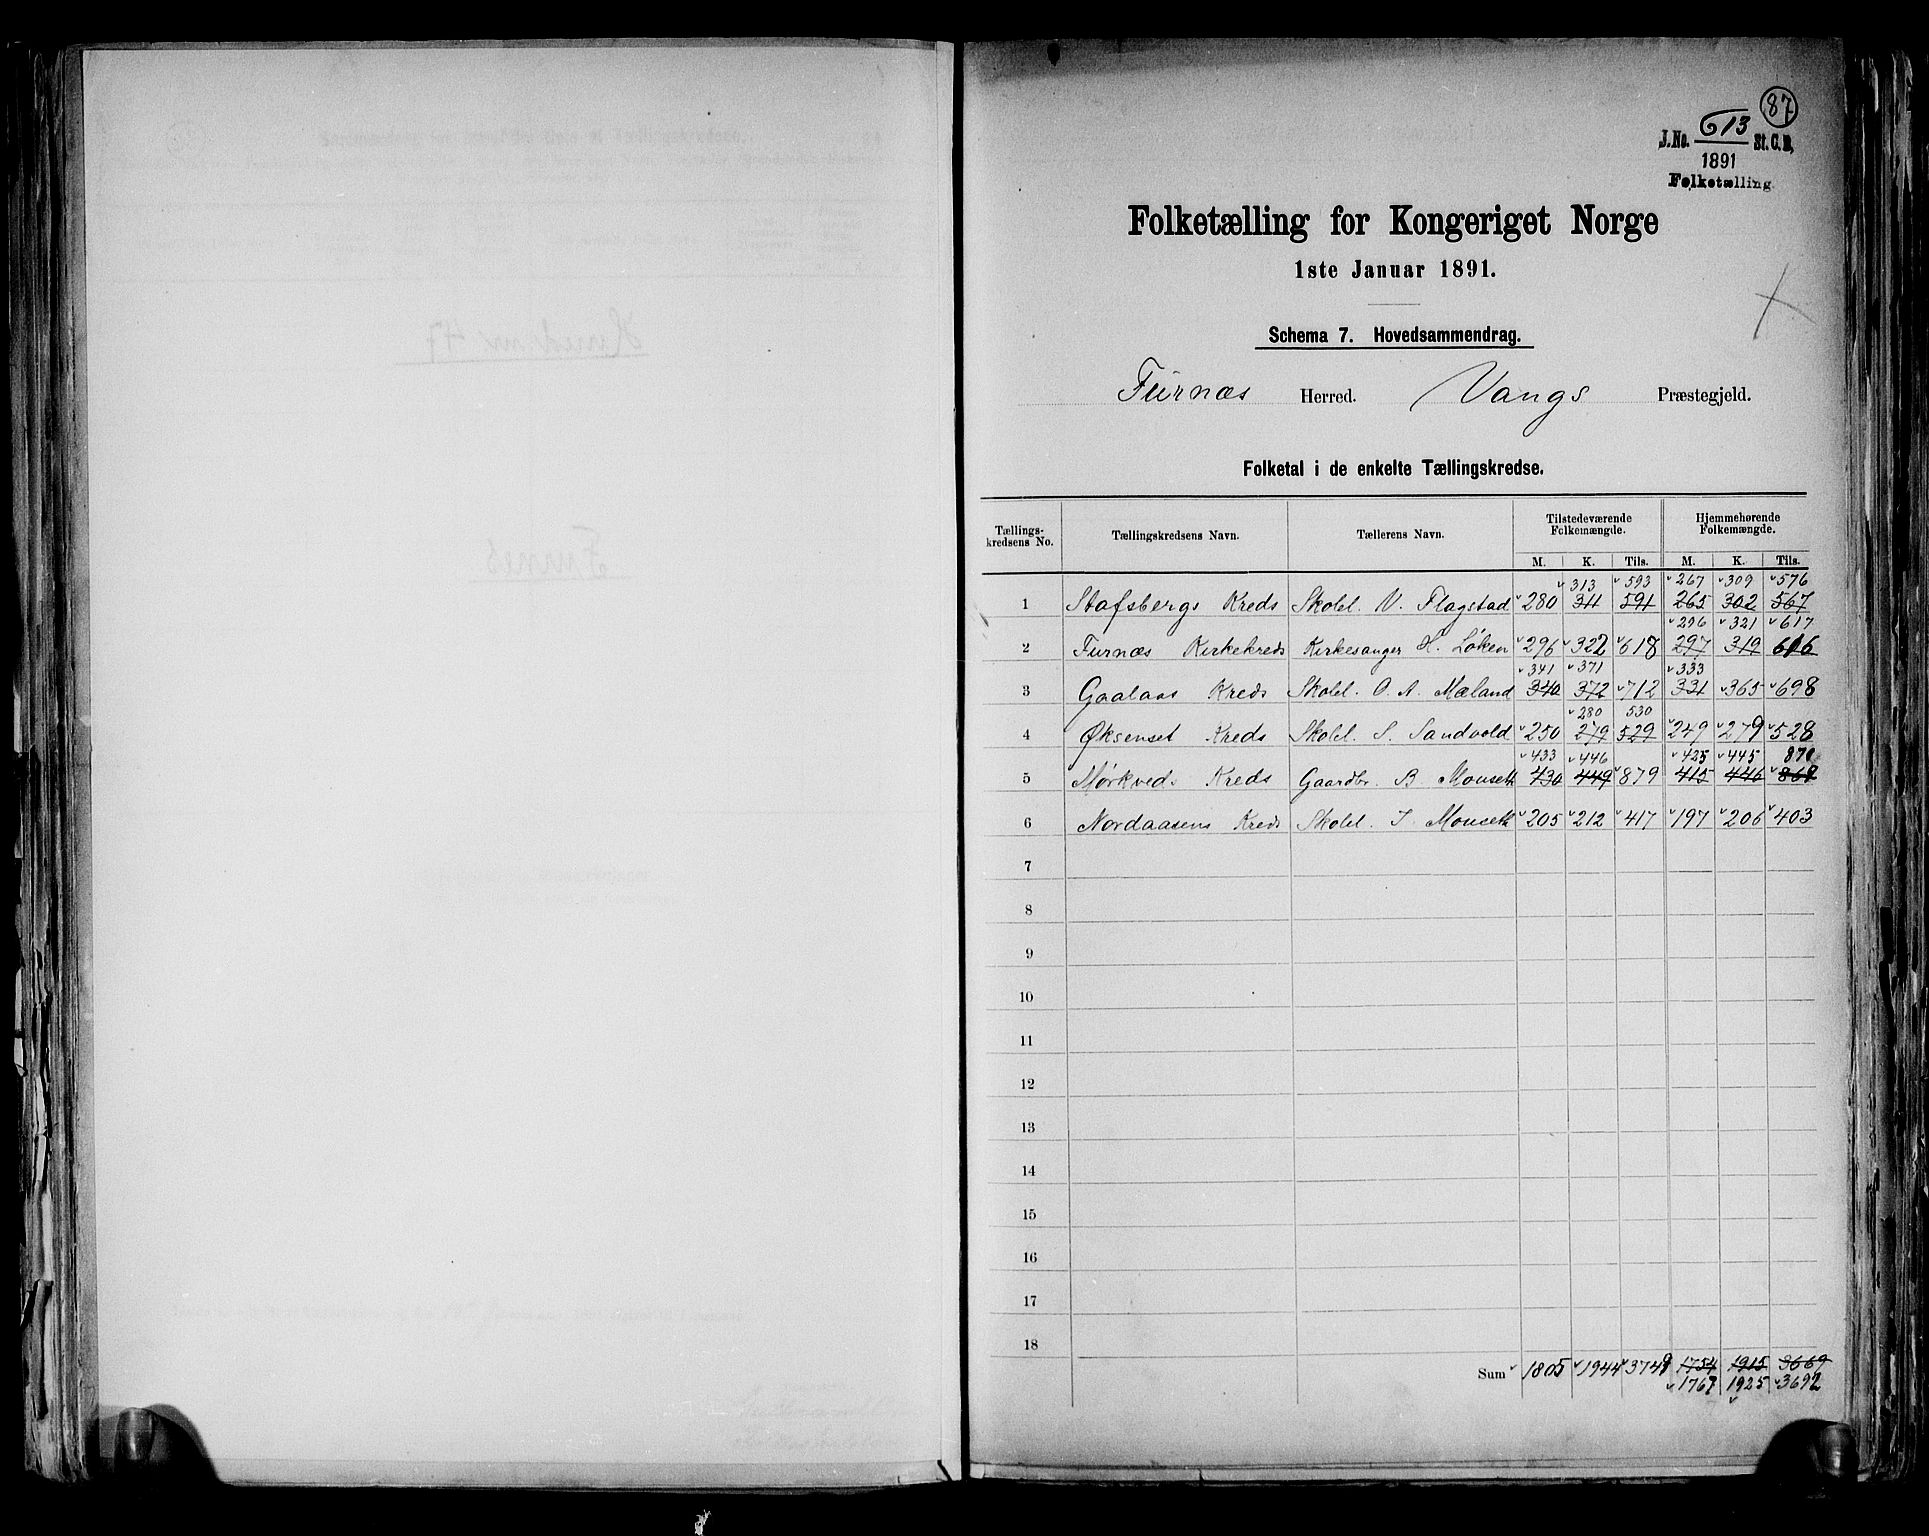 87
J.No. 613 St.C.B.
1891
Folketælling
Folketælling for Kongeriget Norge
1ste Januar 1891.
Schema 7. Hovedsammendrag.
Furnæs Herred. Vangs Præstegjeld.
Folketal i de enkelte Tællingskredse.
Tællings-kredsens No. Tællingskredsens Navn. Tællerens Navn. Tilstedeværende Folkemængde. Hjemmehørende Folkemængde.
M. K. Tils. M. K. Tils.
313 593 267 309 576
1 Stafsbergs Kreds Skolel. N. Flagstad 280 311 591 265 302 567
296 321 617
2 Furnæs Kirkekreds Kirkesanger H. Løken 296 322 618 297 319 616
341 371 333
3 Gaalaas Kreds Skolel. O. A. Mæland 340 372 712 331 365 698
280 530
4 Øksenset Kreds Skolel. S. Sandvold 250 279 529 249 279 528
433 446 425 445 870
5 Mørkveds Kreds Gaardbr. B. Monseth 430 449 879 415 446
6 Nordaasens Kreds Skolel. I. Monseth 205 212 417 197 206 403
7
8
9
10
11
12
13
14
15
16
17
18
Sum 1805 1944 3749 1754 1915 3669
1767 1925 3692